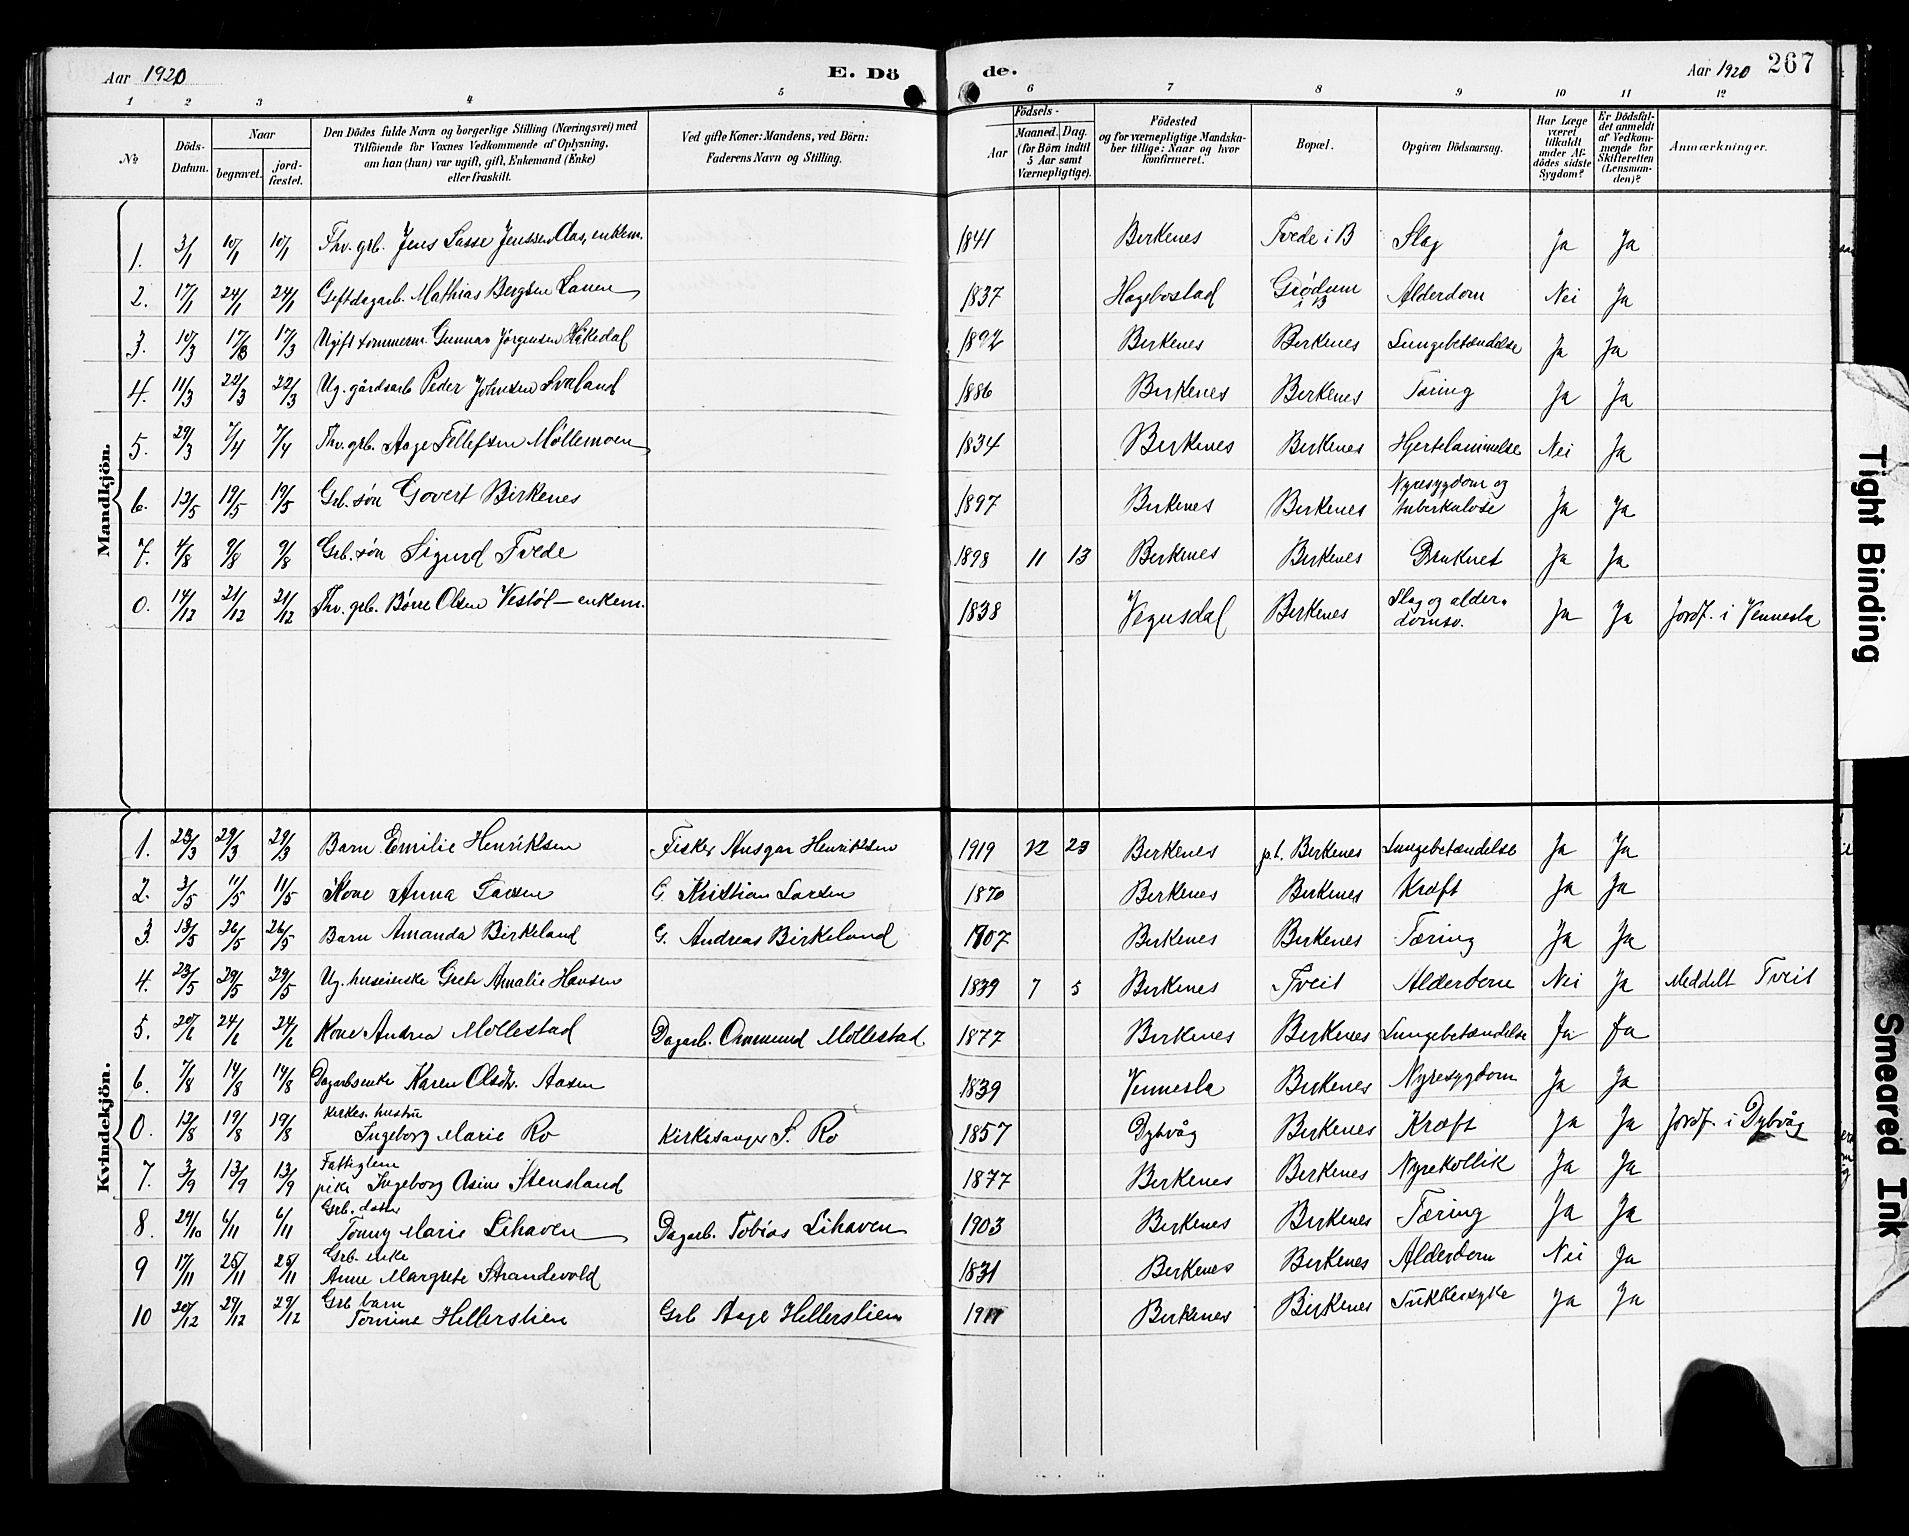 Aar 1920 E. Dö de. Aar 1920 267
1 2 3 4 5 6 7 8 9 10 11 12
No
Döds-Datum.
Naar
begravet.
jord-fæstet.
Den Dödes fulde Navn og borgerlige Stilling (Næringsvei) med
Tilföiende for Voxnes Vedkommende af Oplysning,
om han (hun) var ugift, gift, Enkemand (Enke)
eller fraskilt.
Ved gifte Koner: Mandens, ved Börn:
Faderens Navn og Stilling.
Födsels-
Aar
Maaned. Dag.
(for Börn indtil
5 Aar samt
Værnepligtige).
Födested
og for værnepligtige Mandska-
ber tillige: Naar og hvor
konfirmeret.
Bopæl.
Opgiven Dödsaarsag.
Har Læge
været
tilkaldt
under Af-
dödes sidste
Sygdom?
Er Dödsfal-
det anmeldt
af Vedkom-
mende for
Skifteretten
(Lensman-
den)?
Anmærkninger.
Mandkjön.
1. 3/1 10/1 10/1 Fhv. grb. Jens Lasse Jenssen Aas, enkem. 1841 Birkenes Tvede i B Slag Ja Ja
2. 17/1 24/1 24/1 Gift dagarb. Mathias Bergsen Lauen 1837 Hægebostad Grødum i B Alderdom Nei Ja
3. 10/3 17/3 17/3 Ugift tømmerm. Gunnar Jørgensen Håkedal 1892 Birkenes Birkenes Lungebetændelse Ja Ja
4. 11/3 22/3 22/3 Ug. gårdsarb. Peder Johnsen Svaland 1886 Birkenes Birkenes Tæring Ja Ja
5. 29/3 7/4 7/4 Fhv. grb. Aage Tellefsen Møllemoen 1834 Birkenes Birkenes Hjertelammelse Nei Ja
6. 13/5 19/5 19/5 Grb. søn Govert Birkenes 1897 Birkenes Birkenes Nyresygdom og tuberkulose Ja Ja
7. 4/8 9/8 9/8 Grb. søn Sigurd Tvede 1898 11 13 Birkenes Birkenes Druknet Ja Ja
0. 14/12 21/12 21/12 Fhv. grb. Børre Olsen Vestøl – enkem. 1838 Vegusdal Birkenes Slag og alder-domsv. Ja Ja Jordf. i Vennesla
Kvindekjön.
1. 23/3 29/3 29/3 Barn Emilie Henriksen Fisker Ansgar Henriksen 1919 12 23 Birkenes p.t. Birkenes Lungebetændelse Ja Ja
2. 3/5 11/5 11/5 Kone Anna Larsen G. Kristian Larsen 1870 Birkenes Birkenes Kræft Ja Ja
3. 18/5 26/5 26/5 Barn Amanda Birkeland G. Andreas Birkeland 1907 Birkenes Birkenes Tæring Ja Ja
4. 23/5 29/5 29/5 Ug. huseierske Grete Amalie Hansen 1839 7 5 Birkenes Tveit Alderdom Nei Ja Meddelt Tveit
5. 20/6 24/6 24/6 Kone Andrea Møllestad Dagarb. Ommund Møllestad 1877 Birkenes Birkenes Lungebetændelse Ja Ja
6. 7/8 14/8 14/8 Dagarbsenke Karen Olsdtr. Aasen 1839 Vennesla Birkenes Nyresygdom Ja Ja
0. 13/8 19/8 19/8 Kirkes. hustru Ingeborg Marie Ro Kirkesanger S. Ro 1857 Dybvåg Birkenes Kræft Ja Ja Jordf. i Dybvåg
7. 3/9 13/9 13/9 Fattiglem pike Ingeborg Asine Stensland 1877 Birkenes Birkenes Nyrekollik Ja Ja
8. 29/10 6/11 6/11 Grb. datter Tonny Marie Lihaven Dagarb. Tobias Lihaven 1903 Birkenes Birkenes Tæring Ja Ja
9 17/11 25/11 25/11 Grb. enke Anne Margrete Strandevold 1831 Birkenes Birkenes Alderdom Nei Ja
10 20/12 29/12 29/12 Grb barn Tomine Hellerslien Grb Aage Hellerslien Birkenes Birkenes Sukkersyke Ja Ja
Tight Binding
Smeared Ink